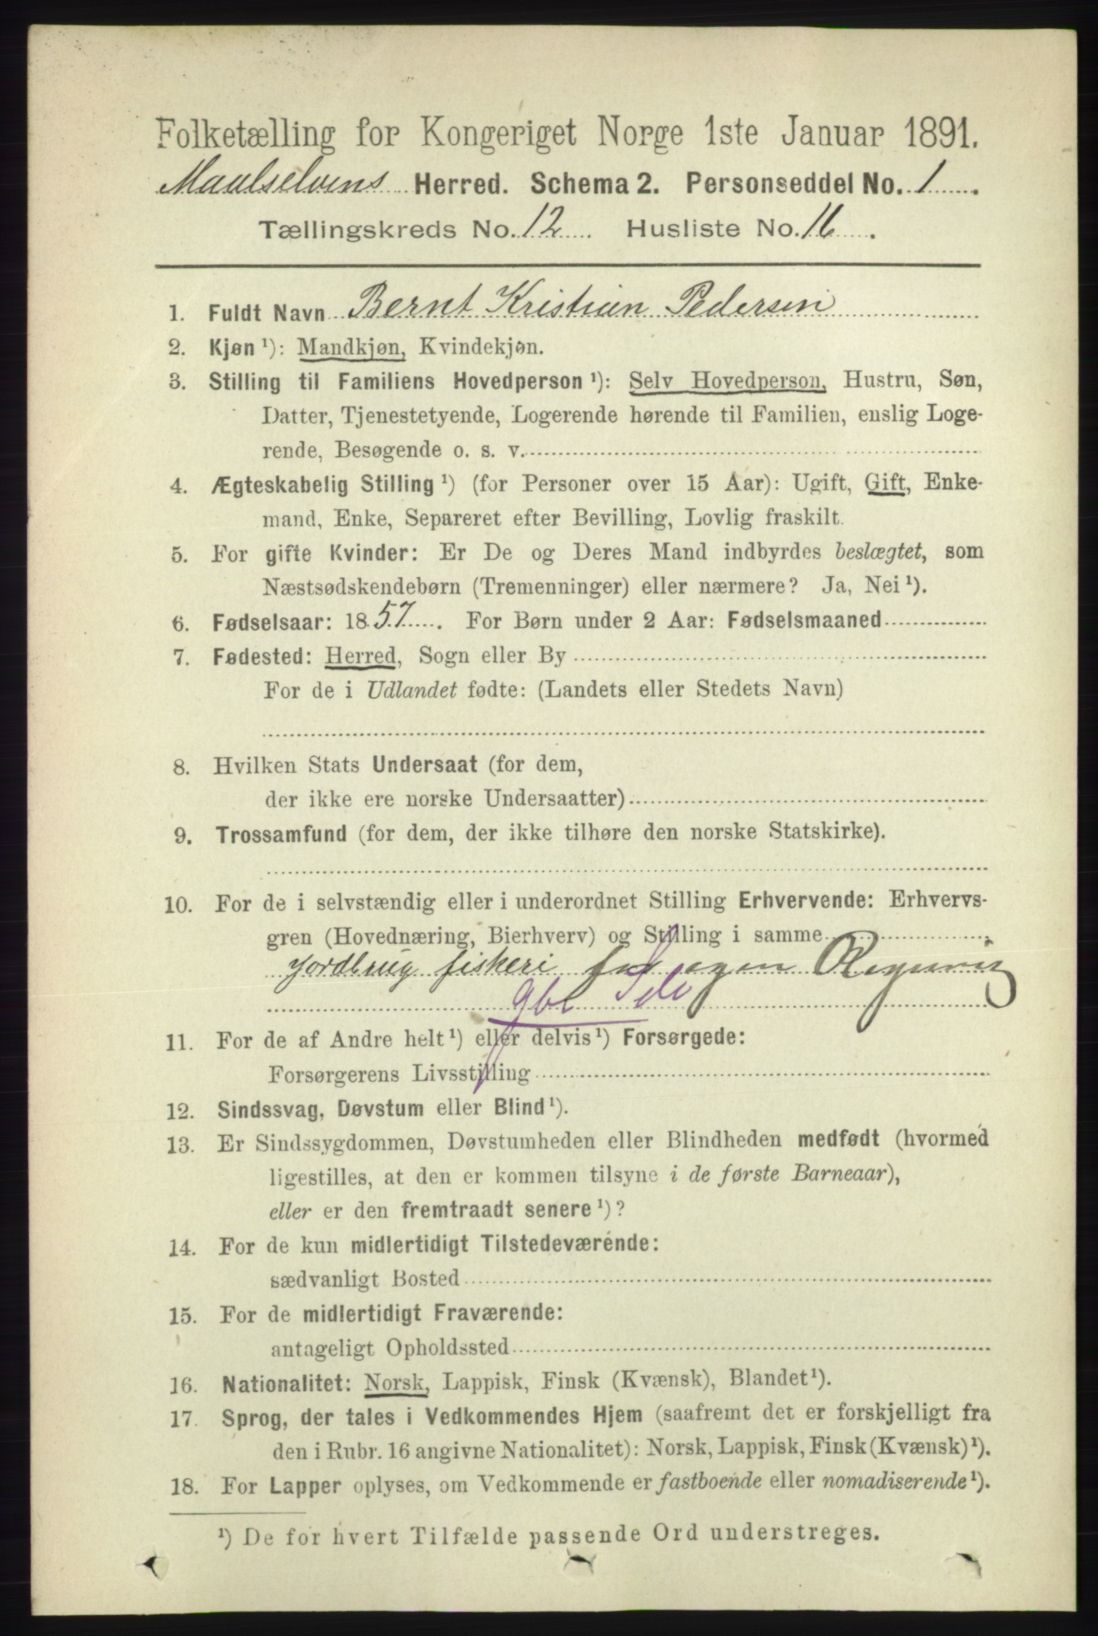 Folketælling for Kongeriget Norge 1ste Januar 1891.
Maalselvens Herred. Schema 2. Personseddel No. 1.
Tællingskreds No. 12. Husliste No. 16.
1. Fuldt Navn Bernt Kristian Pedersen
2. Kjøn ¹): Mandkjøn, Kvindekjøn.
3. Stilling til Familiens Hovedperson ¹): Selv Hovedperson, Hustru, Søn,
Datter, Tjenestetyende, Logerende hørende til Familien, enslig Loge-
rende, Besøgende o. s. v.
4. Ægteskabelig Stilling ¹) (for Personer over 15 Aar): Ugift, Gift, Enke-
mand, Enke, Separeret efter Bevilling, Lovlig fraskilt.
5. For gifte Kvinder: Er De og Deres Mand indbyrdes beslægtet, som
Næstsødskendebørn (Tremenninger) eller nærmere? Ja, Nei ¹).
6. Fødselsaar: 1857. For Børn under 2 Aar: Fødselsmaaned
7. Fødested: Herred, Sogn eller By
For de i Udlandet fødte: (Landets eller Stedets Navn)
8. Hvilken Stats Undersaat (for dem,
der ikke ere norske Undersaatter)
9. Trossamfund (for dem, der ikke tilhøre den norske Statskirke).
10. For de i selvstændig eller i underordnet Stilling Erhvervende: Erhvervs-
gren (Hovednæring, Bierhverv) og Stilling i samme
Jordbrug fiskeri for egen Regning
gbr
11. For de af Andre helt ¹) eller delvis ¹) Forsørgede:
Forsørgerens Livsstilling
12. Sindssvag, Døvstum eller Blind ¹).
13. Er Sindssygdommen, Døvstumheden eller Blindheden medfødt (hvormed
ligestilles, at den er kommen tilsyne i de første Barneaar),
eller er den fremtraadt senere ¹)?
14. For de kun midlertidigt Tilstedeværende:
sædvanligt Bosted
15. For de midlertidigt Fraværende:
antageligt Opholdssted
16. Nationalitet: Norsk, Lappisk, Finsk (Kvænsk), Blandet ¹).
17. Sprog, der tales i Vedkommendes Hjem (saafremt det er forskjelligt fra
den i Rubr. 16 angivne Nationalitet): Norsk, Lappisk, Finsk (Kvænsk) ¹).
18. For Lapper oplyses, om Vedkommende er fastboende eller nomadiserende ¹).
¹) De for hvert Tilfælde passende Ord understreges.